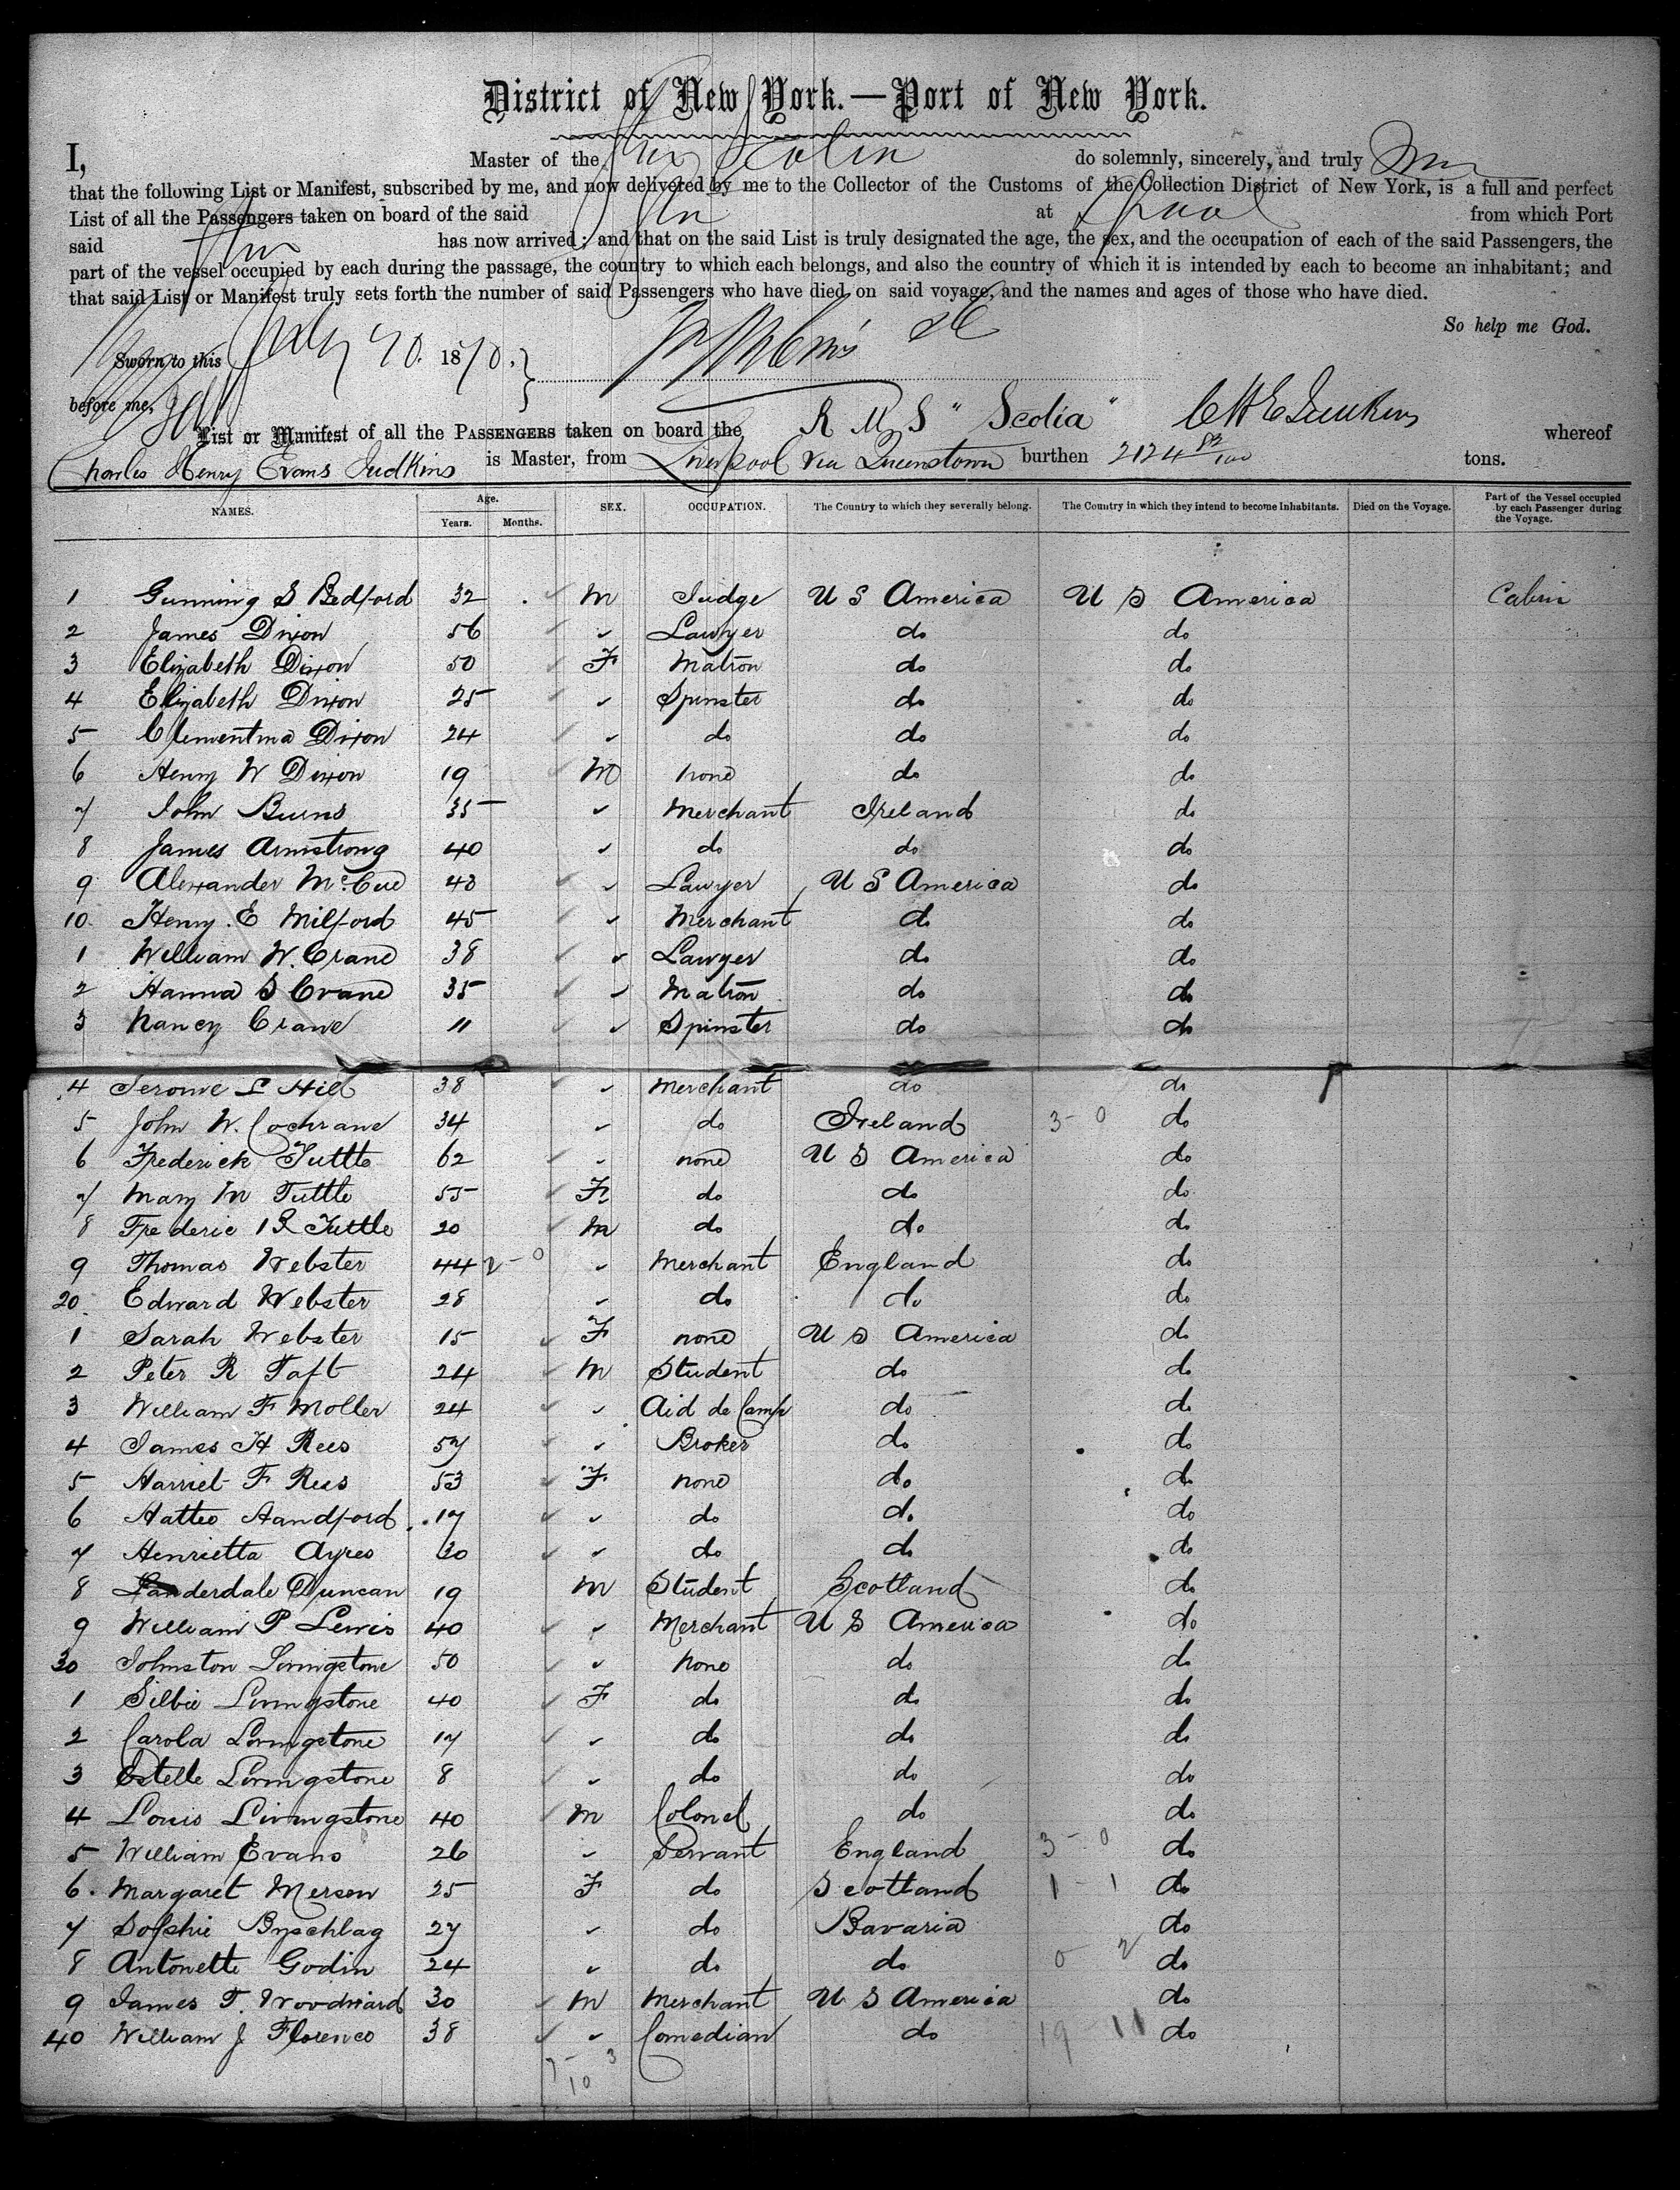 District of New York.—Port of New York.
I, Master of the Scotia do solemnly, sincerely, and truly
that the following List or Manifest, subscribed by me, and now delivered by me to the Collector of the Customs of the Collection District of New York, is a full and perfect
List of all the Passengers taken on board of the said at from which Port
said has now arrived; and that on the said List is truly designated the age, the sex, and the occupation of each of the said Passengers, the
part of the vessel occupied by each during the passage, the country to which each belongs, and also the country of which it is intended by each to become an inhabitant; and
that said List or Manifest truly sets forth the number of said Passengers who have died on said voyage, and the names and ages of those who have died.
So help me God.
Sworn to this July 1870.
before me,
List or Manifest of all the PASSENGERS taken on board the R M S "Scotia" C H E Judkins whereof
Charles Henry Evans Judkins is Master, from Liverpool via Queenstown burthen 2124 82/100 tons.
NAMES. Age. Years. Months. SEX. OCCUPATION. The Country to which they severally belong. The Country in which they intend to become Inhabitants. Died on the Voyage. Part of the Vessel occupied by each Passenger during the Voyage.
1 Gunning S Bedford 32 M Judge U S America U S America Cabin
2 James Dixon 56 " Lawyer do do
3 Elizabeth Dixon 50 F Matron do do
4 Elizabeth Dixon 25 " Spinster do do
5 Clementina Dixon 24 " do do do
6 Henry W Dixon 19 M none do do
7 John Burns 35 " Merchant Ireland do
8 James Armstrong 40 " do do do
9 Alexander McCue 43 " Lawyer U S America do
10 Henry E Milford 45 " Merchant do do
1 William W. Crane 38 " Lawyer do do
2 Hanna S Crane 35 " Matron do do
3 Nancy Crane 11 " Spinster do do
4 Jerome L Hill 38 " Merchant do do
5 John W. Cochrane 34 " do Ireland 3 - 0 do
6 Frederick Tuttle 62 " none U S America do
7 Mary M Tuttle 55 F do do do
8 Frederic Tuttle 20 M do do do
9 Thomas Webster 44 2 - 0 " Merchant England do
20 Edward Webster 28 " do do do
1 Sarah Webster 15 F none U S America do
2 Peter R Taft 24 M Student do do
3 William F Moller 24 " Aid de Camp do do
4 James H Rees 57 " Broker do do
5 Harriet F Rees 53 F none do do
6 Hattie Handford 17 " do do do
7 Henrietta Ayres 30 " do do do
8 Lauderdale Duncan 19 M Student Scotland do
9 William P Lewis 40 " Merchant U S America do
30 Johnston Livingstone 50 " none do do
1 Silbie Livingstone 40 F do do do
2 Carola Livingstone 17 " do do do
3 Estelle Livingstone 8 " do do do
4 Louis Livingstone 40 M Colonel do do
5 William Evans 26 " Servant England 3 - 0 do
6 Margaret Merson 25 F do Scotland 1 - 1 do
7 Sophie 27 " do Bavaria do
8 Antonette Godin 24 " do do 0 2 do
9 James T. Woodward 30 M Merchant U S America do
40 William J Florence 38 " Comedian do 19 11 do
7 - 3
10